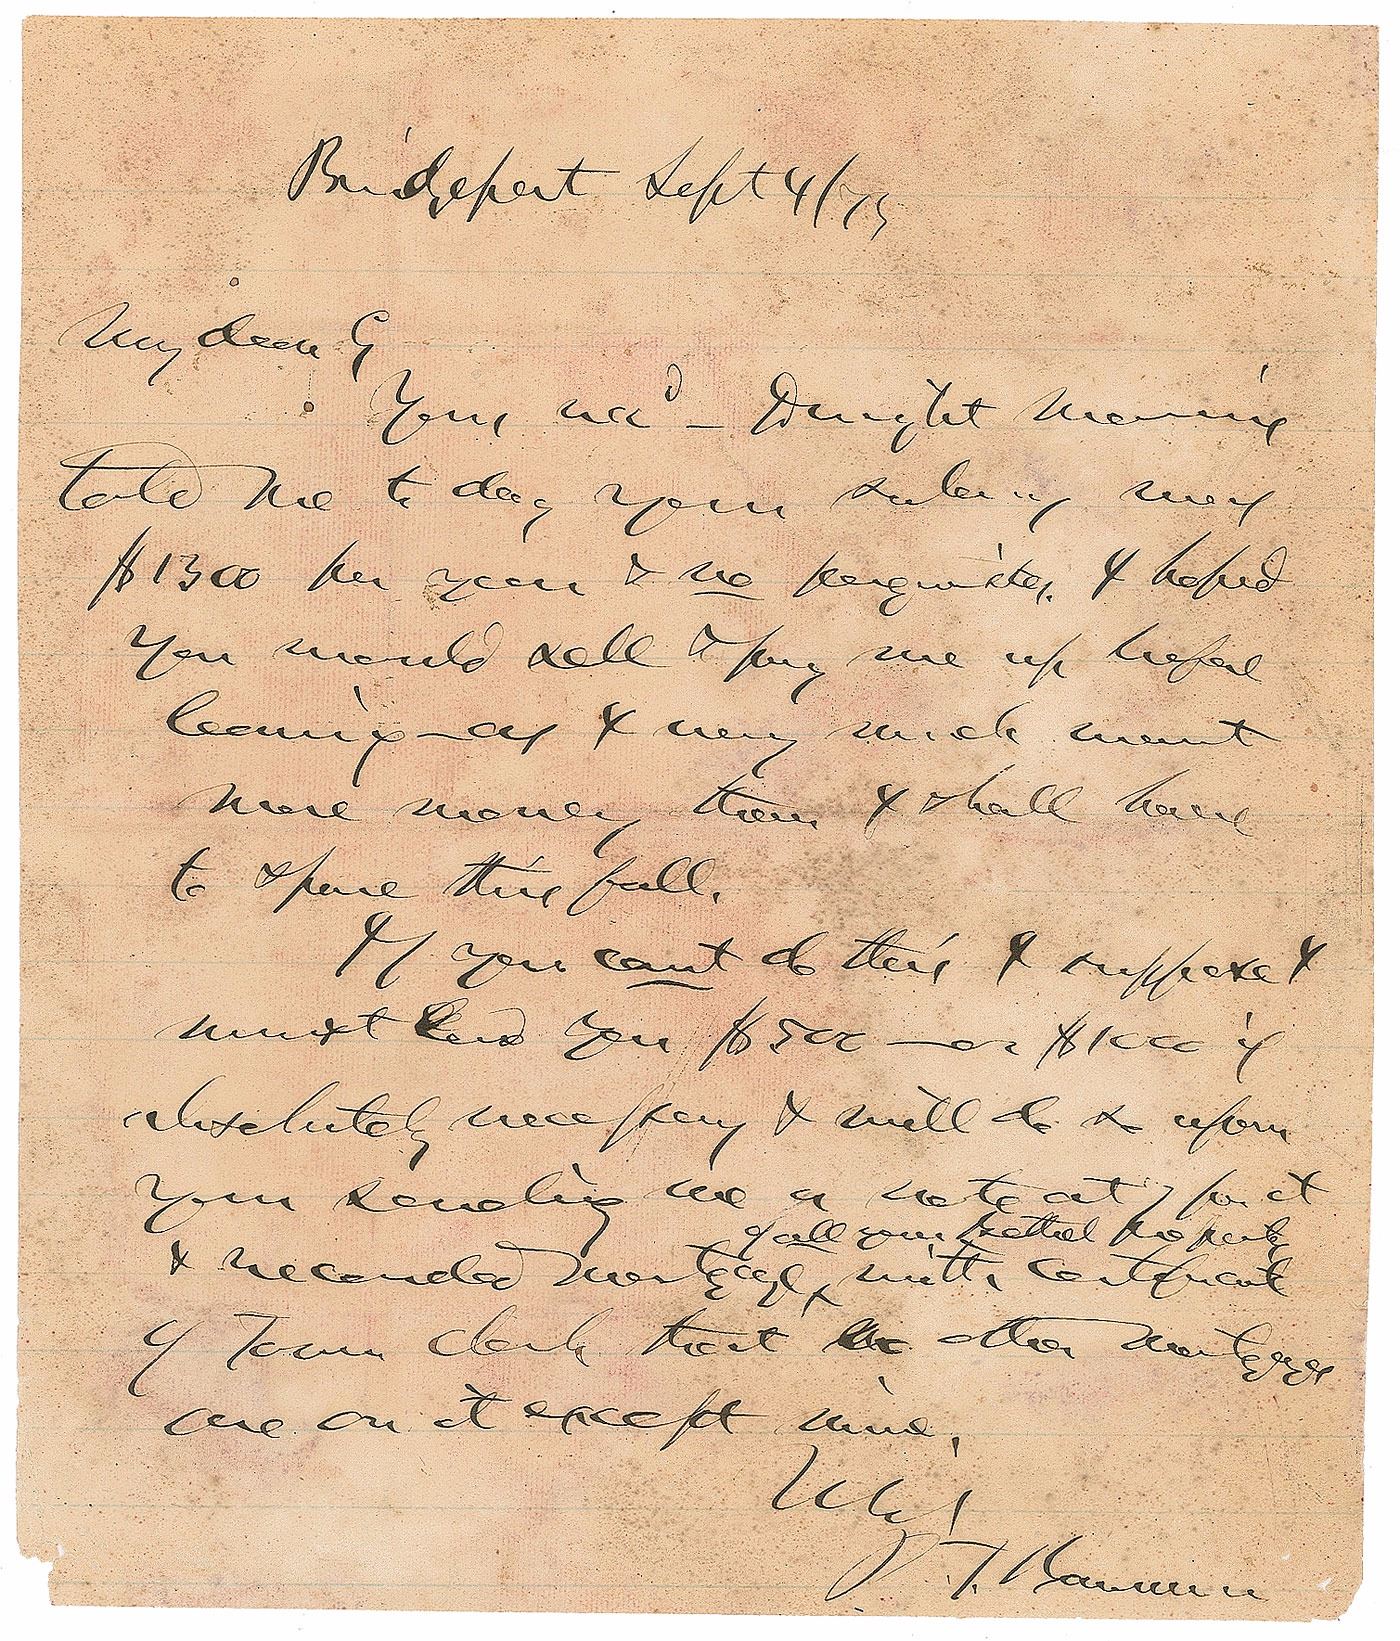 Bridgeport Sept 4/75
My dear G
Yours rec'd – Dwight Morris
told me to day your salary was
$1300 per year & no perquisites. I hoped
you would sell & pay me up before
leaving – as I very much want
more money than I shall have
to spare this fall.
If you cant do this I suppose I
must lend you $500 – or $1000 if
absolutely necessary & will do so upon
your sending me a note at 7 pr ct
of all your Bethel property
& recorded mortgage, with certificate
of Town clerk that no other mortgages
are on it except mine.
P. T. Barnum